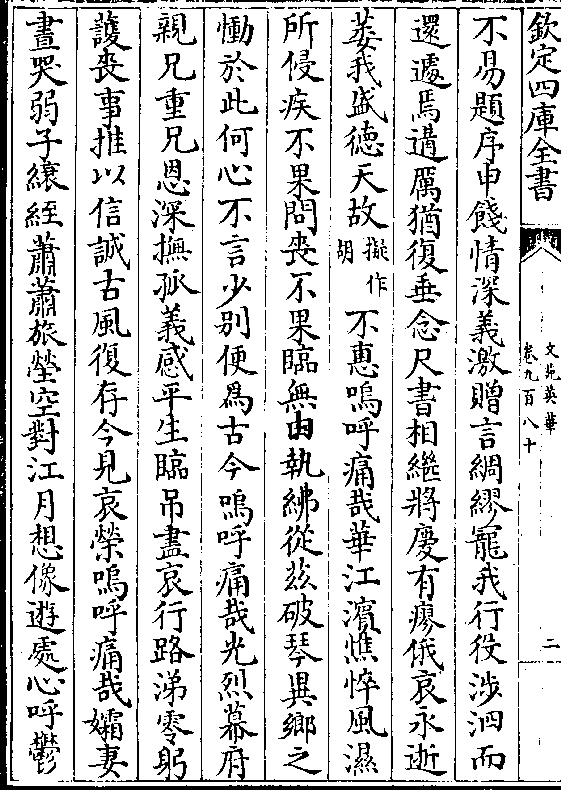 欽定四庫全書
文苑英華
卷九百八十
二
不易題序申餞情深義激贈言綢繆寵我行役涉泗而
還遽焉遘厲猶復垂念尺書相繼將慶有瘳俄哀永逝
萎我盛德天故擬作胡不惠嗚呼痛哉華江濱憔悴風濕
所侵疾不果問喪不果臨無由執紼從茲破琴異鄉之
慟於此何心不言少別便為古今嗚呼痛哉光烈幕府
親兄重兄恩深撫孤義感平生臨吊盡哀行路涕零躬
護喪事推以信誠古風復存今見哀榮嗚呼痛哉孀妻
晝哭弱子縗絰蕭蕭旅塋空對江月想像遊處心呼鬱